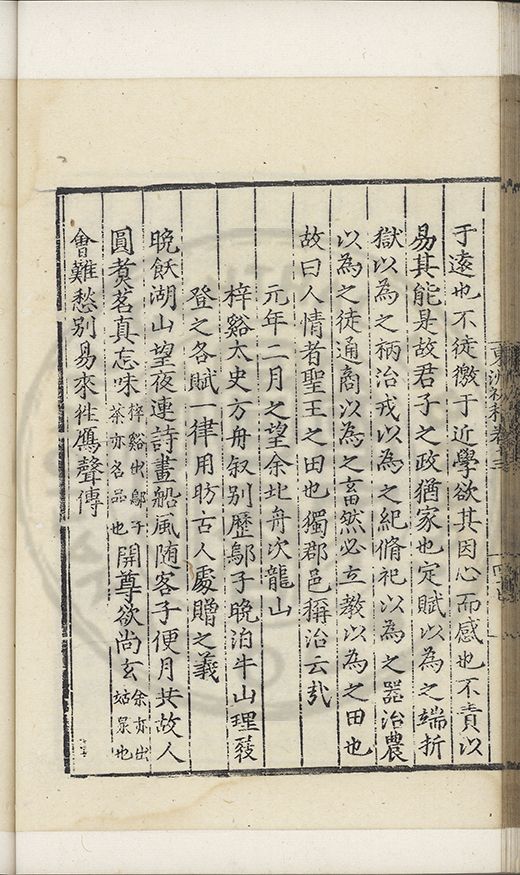 于遠也不徒徼于近學欲其因心而感也不責以
易其能是故君子之政猶家也定賦以為之端折
獄以為之柄治戎以為之紀脩祀以為之噐治農
以為之徒通商以為之畜然必立教以為之田也
故曰人情者聖王之田也獨郡邑稱治云㢤
元年二月之望余北舟次龍山
梓谿太史方舟叙别歷鄔子晚泊牛山理𦪇
登之各賦一律用昉古人處贈之義
晩飫湖山望夜連詩畫船風随客子便月共故人
圓煑茗真忘味梓谿出鄔子茶亦名品也開尊欲尚玄余亦出姑泉也
會難愁别易來徃鴈聲傳